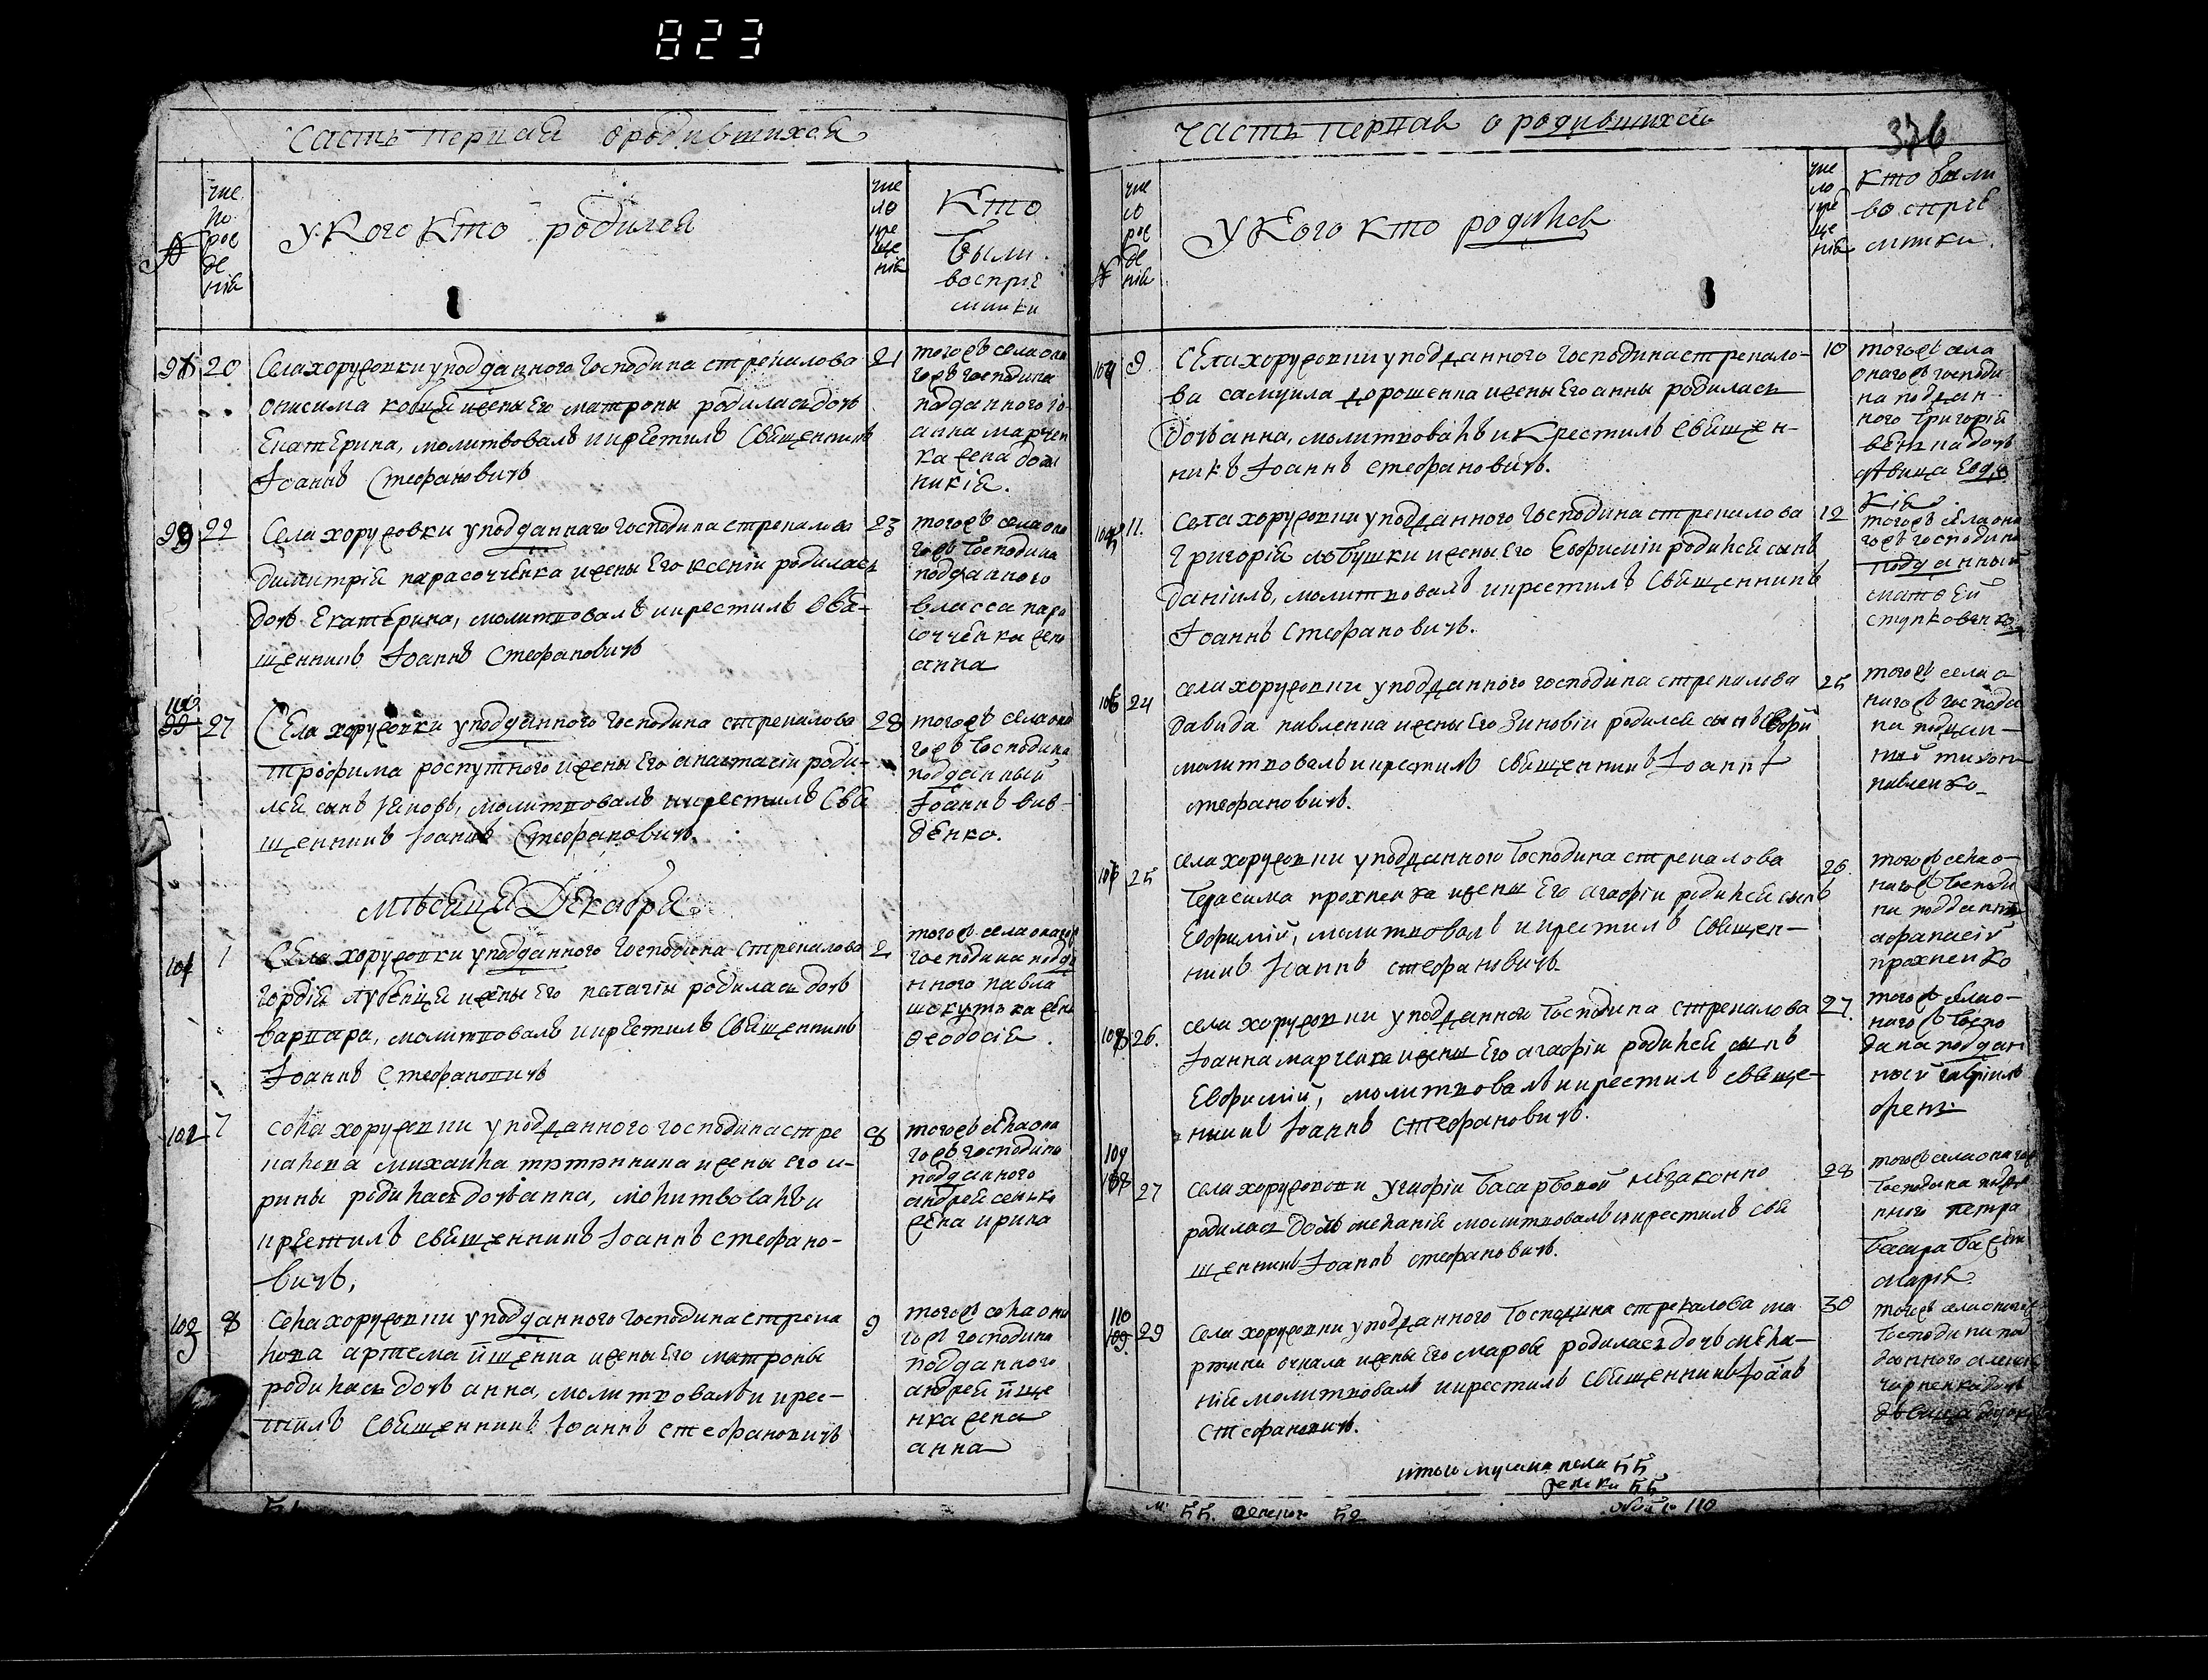 823
Часть первая о родившихся
№
чис
ло
рож
де
нія
У кого кто родился
чис
ло
кре
ще
нія
Кто
были
воспріе
мники
98 20 Села хоружовки у подданного господина стрекалова
онисима жены его матроны родилась дочь
Екатерина, молитвовалъ и крестилъ Священникъ
Іоаннъ Стефановичъ
21 того жъ села она
гожъ господина
подданного іо
анна марчен
ка жена дом
никія.
99 22 Села хоружовки у подданнаго господина стрекалова
димитрія парасоченка жены его ксеніи родилась
дочь Екатерина, молитвовалъ и крестилъ свя-
щенникъ Іоаннъ Стефановичъ
23 того жъ села она
гожъ господина
подданного
власса пара
соченка жена
анна
100
99 27 Села хоружовки у подданного господина стрекалова
трофима роспутного жены его анастасіи роди-
лся сынъ Іаковъ, молитвовалъ и крестилъ Свя
щенникъ Іоаннъ Стефановичъ.
28 того жъ села она
гожъ господина
подданный
Іоаннъ вив-
денко.
Мѣсяца Декабря
101 1 Села хоружовки у подданного господина стрекалова
гордія жены его пелагіи родилась дочь
варвара, молитвовалъ и крестилъ Священникъ
Іоаннъ Стефановичъ
2 того жъ села онагожъ
господина подда
нного павла
жена
феодосія.
102 7 села хоружовки у подданного господина стре
калова михаила жены его и-
рины родилась дочь анна, молитвовалъ и
крестилъ священникъ Іоаннъ стефано-
вичъ,
8 того жъ села она
гожъ господина
подданного
андрея сенька
жена ирина
103 8 Села хоружовки у подданного господина стрека
лова артема йщенка жены его матроны
родилась дочь анна, молитвовалъ и крес-
тилъ Священникъ Іоаннъ стефановичъ
9 того жъ села она
гожъ господина
подданного
андрея йще
нка жена
анна
Часть первая о родившихся
376
№
чис
ло
рож
де
нія
У кого кто родился
чис
ло
кре
ще
нія
кто были
воспріе
мники.
104 9. Села хоружовки у подданного господина стрекало-
ва самуила дорошенка жены его анны родилась
дочь анна, молитвовалъ и крестилъ священ-
никъ Іоаннъ стефановичъ.
10 того жъ села
онагожъ господи
на поддан
ного григорія
дочь
дѣвица Евдо
кія.
105 11. села хоружовки у подданного господина стрекалова
Григорія любушки жены его Евфиміи родился сынъ
Даніилъ, молитвовалъ и крестилъ Священникъ
Іоаннъ Стефановичъ.
12 того жъ села она
гожъ господина
подданный
матвей
ступковенко
106 24 села хоружовки у подданного господина стрекалова
Давида павленка жены его Зиновіи родился сынъ
молитвовалъ и крестилъ священникъ Іоаннъ
стефановичъ.
25 того жъ села о
нагожъ господи
на поддан-
ный тихонъ
павленко
107 25 села хоружовки у подданного господина стрекалова
Герасима прохненка жены его агафіи родился сынъ
Евфимій, молитвовалъ и крестилъ Священ-
никъ Іоаннъ стефановичъ.
26 того жъ села о-
нагожъ господи
на подданный
афанасій
прохненко
108 26. села хоружовки у подданного господина стрекалова
Іоанна марченка жены его агафіи родился сынъ
Евфимій, молитвовалъ и крестилъ свяще-
нникъ Іоаннъ стефановичъ.
27. того жъ села о-
нагожъ госпо
дина поддан
ный гавріилъ
109
108 27 села хоружовки у гафіи басарабовой незаконно
родилась дочь меланія молитвовалъ и крестилъ свя
щенникъ Іоаннъ стефановичъ.
28 того жъ села онагожъ
господина подда
нного петра
басараба жена
марія.
110
109. 29 села хоружовки у подданного господина стрекалова ма
ртина очкала жены его марфы родилась дочь мела-
нія молитвовалъ и крестилъ священникъ Іоаннъ
стефановичъ.
30 того жъ села онагожъ
господина под
данного
дочь
дѣвица
итого мужска пола 55
женска 55
обоего 110
м. 55. женского 52